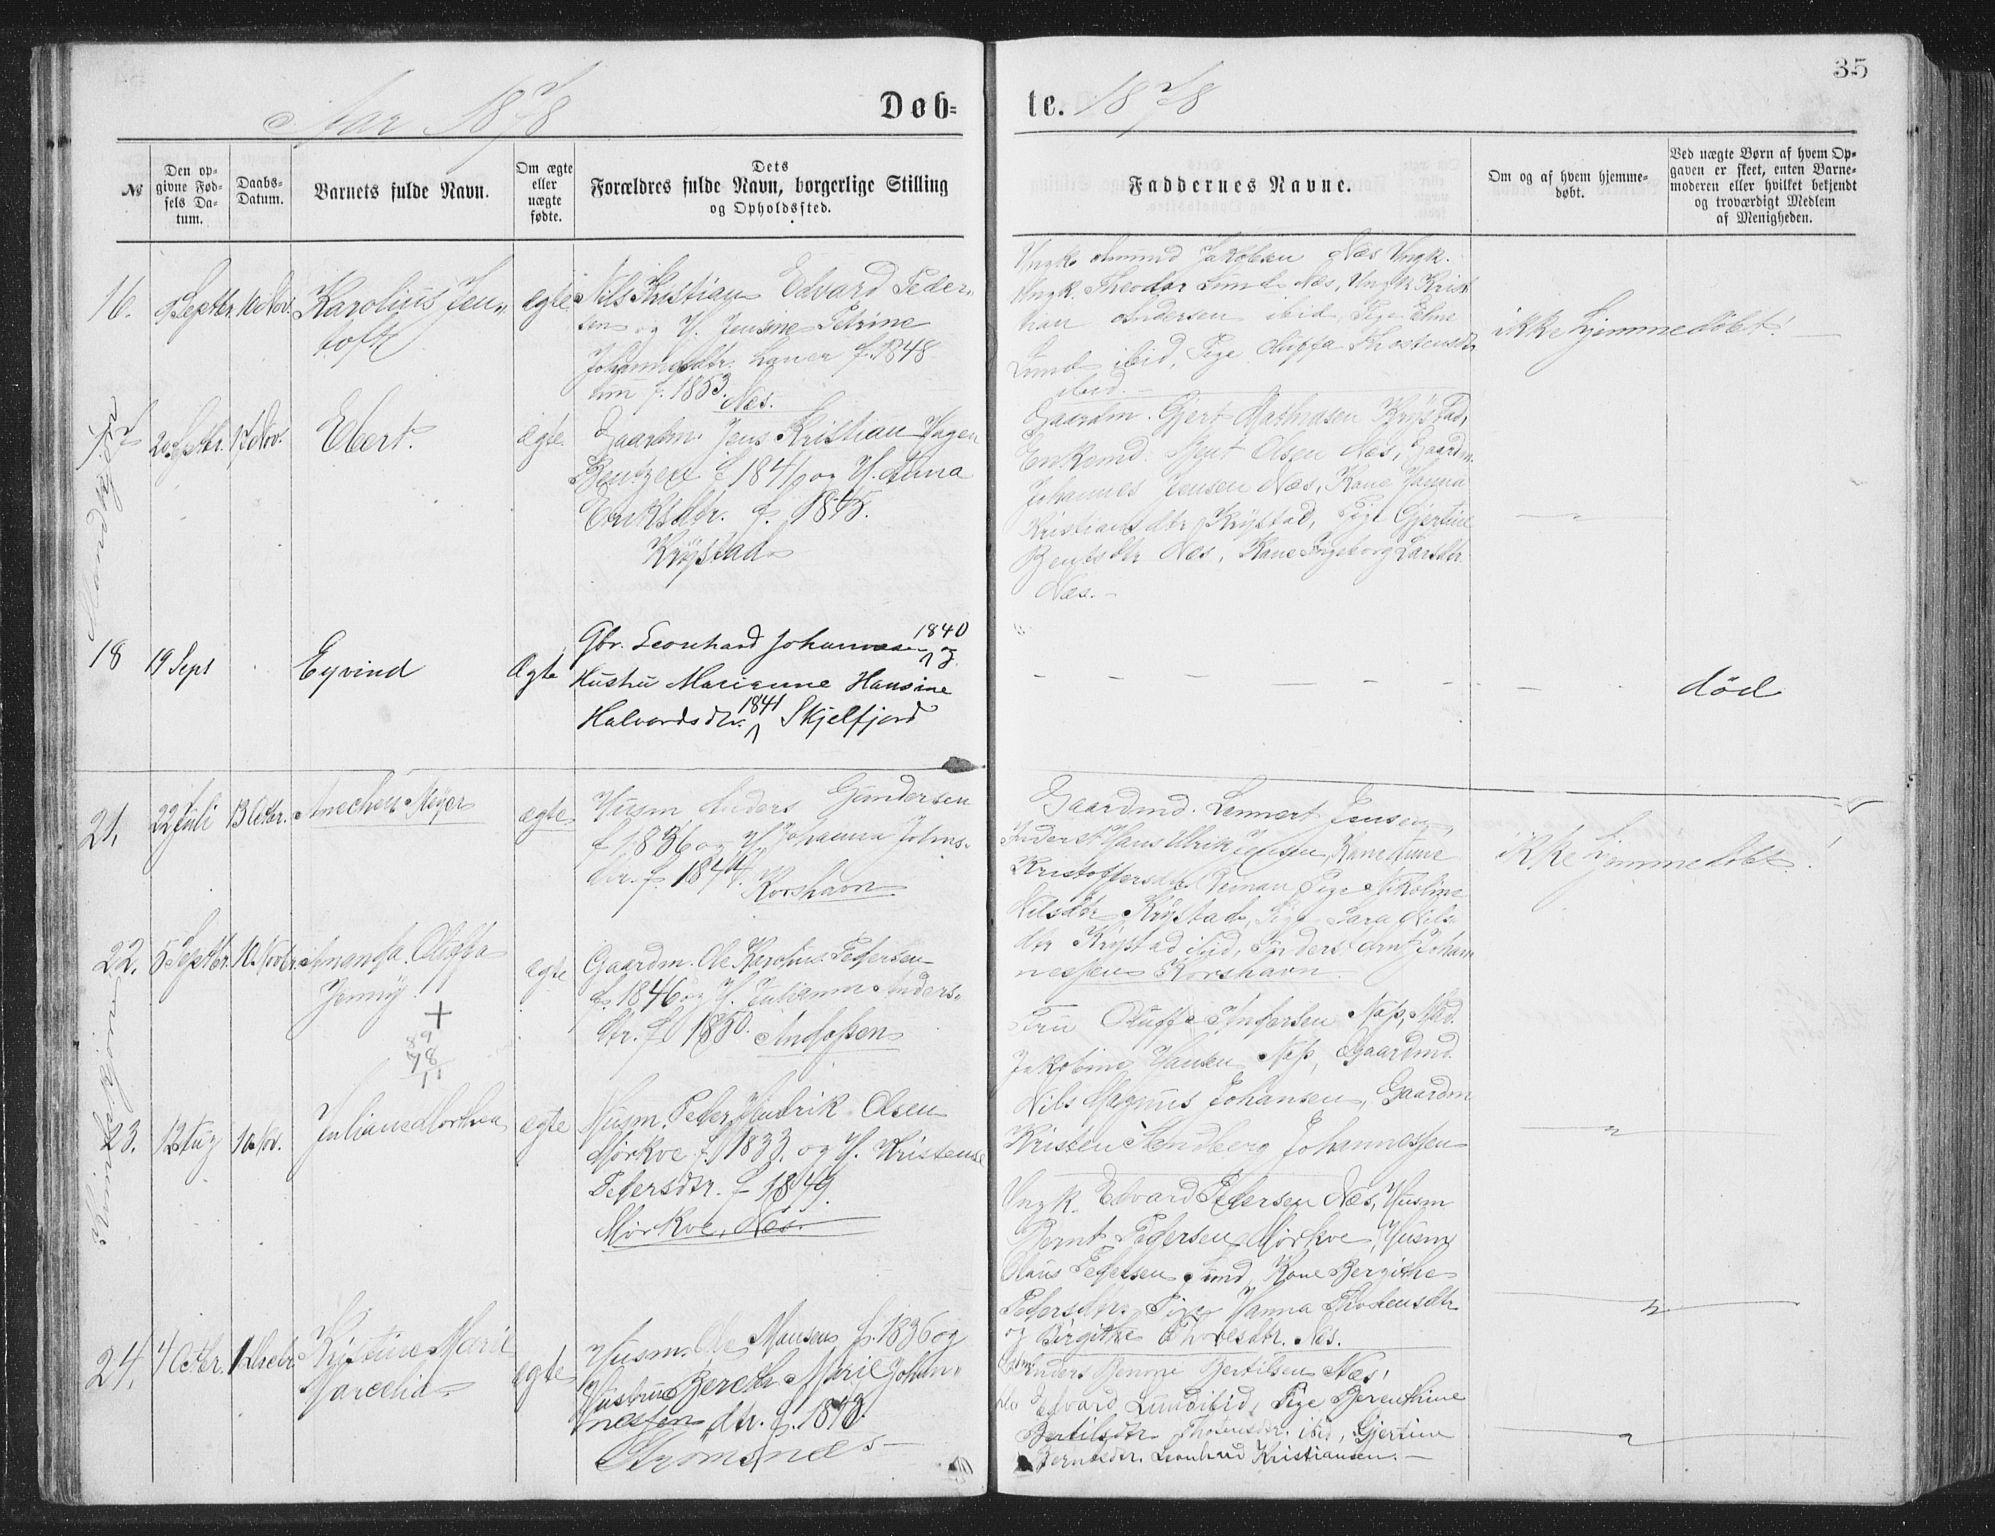 35
Aar 1878
Døb-
te. 1878
№
Den op-
givne Fød-
sels Da-
tum.
Daabs-
Datum.
Barnets fulde Navn.
Om ægte
eller
uægte
fødte.
Dets
Forældres fulde Navn, borgerlige Stilling
og Opholdssted.
Faddernes Navne.
Om og af hvem hjemme-
døbt.
Ved uægte Børn af hvem Op-
gaven er skeet, enten Barne-
moderen eller hvilket bekjendt
og troværdigt Medlem
af Menigheden.
Mandkjøn
16.
Septbr. 10 Nov.
Karolius Jen-
toft
ægte
Nils Kristian Edvard Peder-
sen og H. Jensine Petrine
Johannesdtr. f. 1848
f. 1853.
Næs.
Ungk. Amund Jakobsen Næs Ungk.
Ungk. Theodor Lund Næs, Ungk. Krist
tian Andersen ibid, Pige Eline
Lund ibid, Pige Thostensdtr
ibid.
ikke hjemmedøbt!
17
20 Septbr. 17 Nov.
Ebert.
ægte
Gaardm. Jens Kristian Hagen
Bentzen f. 1841 og H. Anna
Eriksdtr. f. 1845.
Krystad
Gaardm. Gjert Mathiasen Krystad,
Enkemd. Bent Olsen Næs, Gaardm.
Johannes Jensen Næs, Kone Hanna
Kristiansdtr Krystad, Pige Gjertine
Bentsdtr Næs, Kone Ingeborg Larsdtr
Næs.
18
19 Sept
Eyvind
Ægte
Gbr. Leonhard Johannesen 1840 og
Hustru Marianne Hansine
Halvordsdtr. 1841 Skjelfjord
død
Kvindekjøn
21.
22 Juli 13 Octbr.
Anechen Meyer
ægte
Husm Anders Gundersen
f 1836 og H. Johanna Johns-
dtr. f. 1844. Korshavn
Gaardmd. Lennert Jensen,
Inderst Hans Ulrik Jensen, Kone Anne
Kristoffersdtr, Pige Nikoline
Nilsdtr Krystad, Pige Sara Nils-
dtr Krystad ibid, Inders. Arnt Johan
nessen Korshavn.
ikke hjemmedøbt!
22.
5 Septbr. 10. Novbr.
Amanda Oluffa
Jenny.
+
89
78
11
ægte
Gaardm. Ole Karolius Pedersen
f. 1846 og H. Julianna Anders-
dtr. f. 1850. Andopen
Fru Oluffe Andersen Næs, Md.
Jakobine Hansen Næs, Gaardmd.
Nils Magnus Johansen, Gaardm
Kristen Sandberg Johannessen
23.
12 Aug 10 Nov.
Juliane Dorthea
ægte
Husm. Peder Hendrik Olsen
Mørkve f. 1833. og H. Kristense
Pedersdtr. f 1849.
Mørkve, Næs.
Ungk. Edvard Pedersen Næs, Husm
Bernt Pedersen Mørkve, Husm
Claus Pedersen Sund, Kone Bergithe
Pedersdtr. Pige Hanna Thostensdtr
og Birgithe Thoresdtr. Næs.
24.
4 Octbr.
Kristine Marie
Marcelia
ægte
Husm. Ole Hansen f. 1836 og
Hustru Berethe Marie Johan-
nessen dtr. f. 1843.
Strømsnæs
Anders Benoni Bertilsen Næs,
Edvard Lund ibid, Pige Berenthine
Bertilsdtr Thostensdtr. ibid, Gjertine
Berntsdtr. Leonhard Kristiansen.